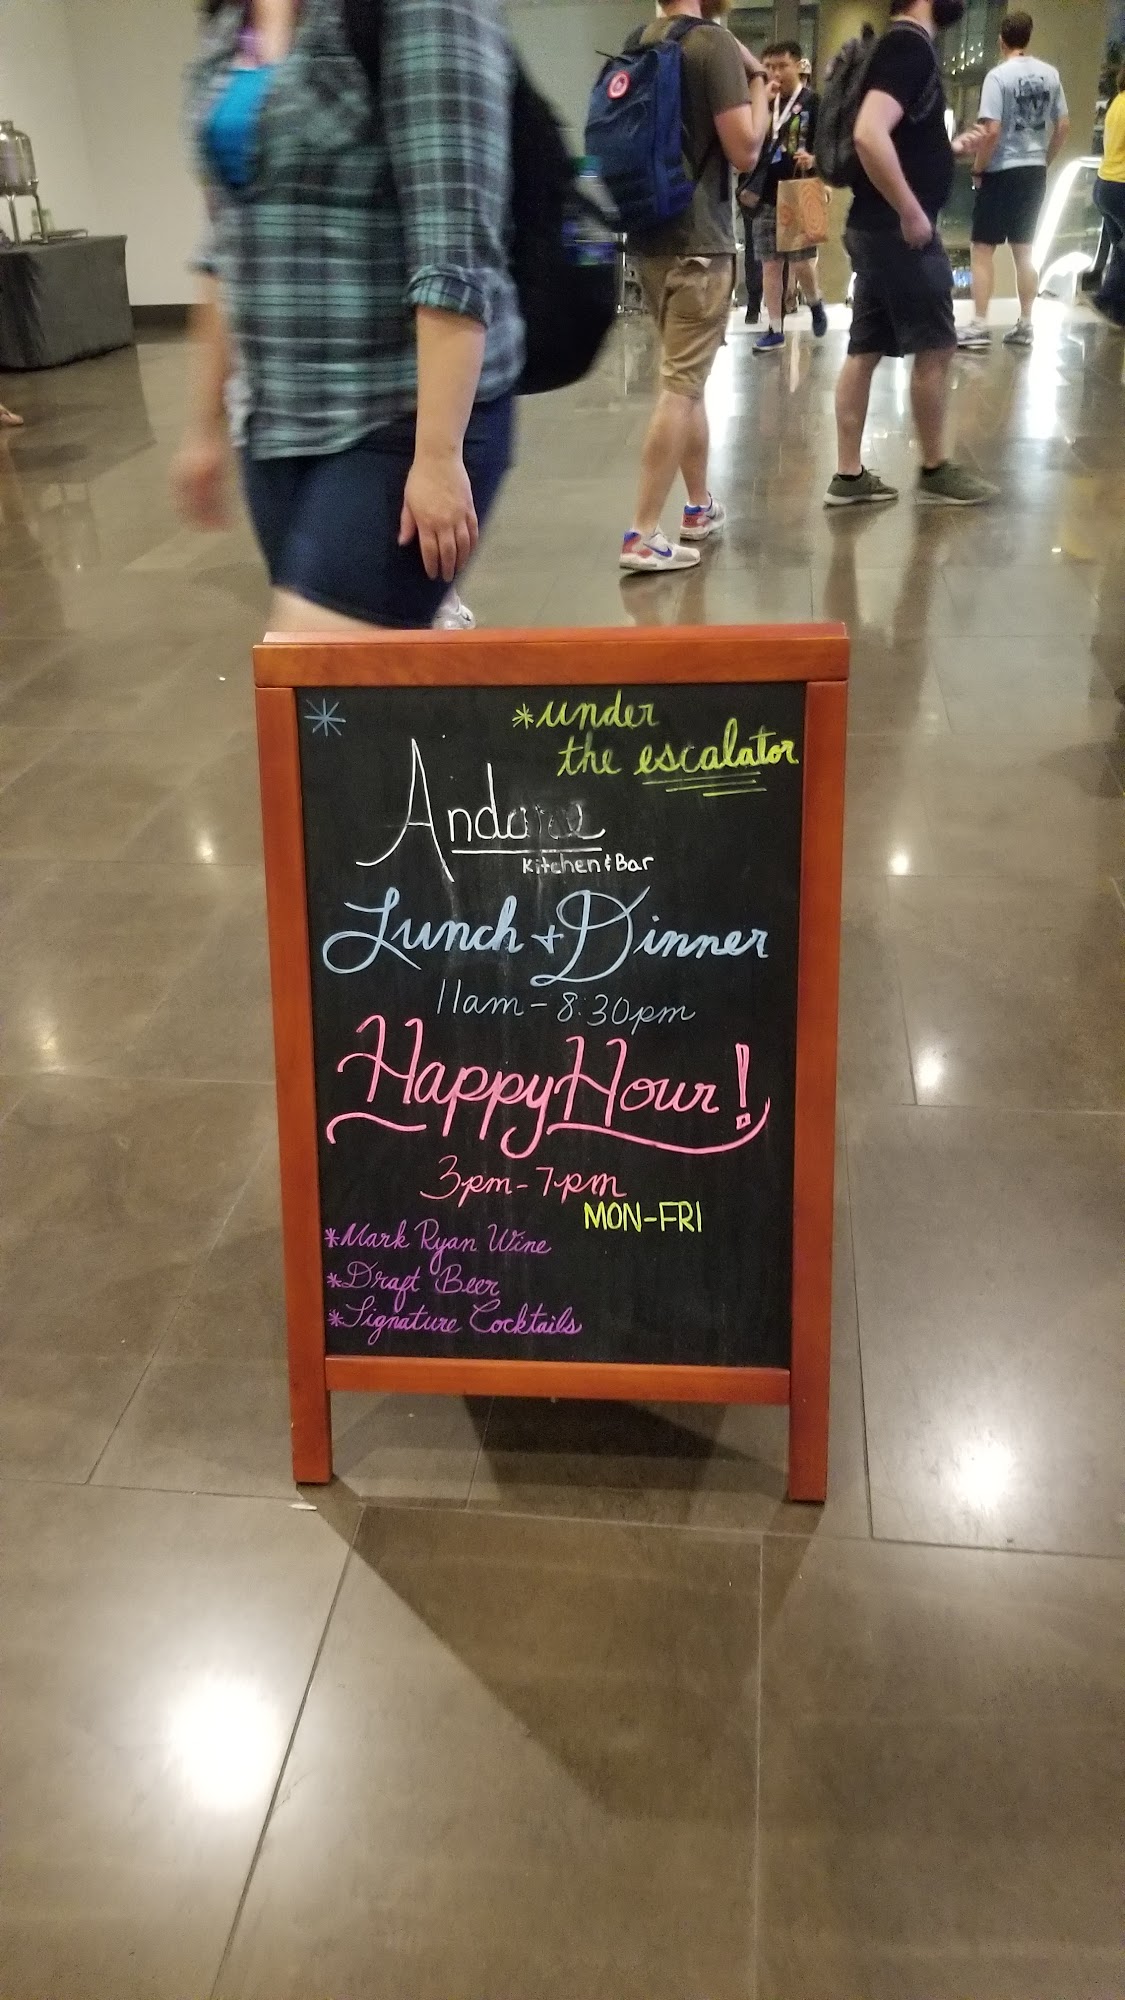 *under
the escalator
Kitchen & Bar
Lunch + Dinner
11am - 8:30pm
Happy Hour!
3pm - 7pm
MON-FRI
*Mark Ryan Wine
*Draft Beer
*Signature Cocktails